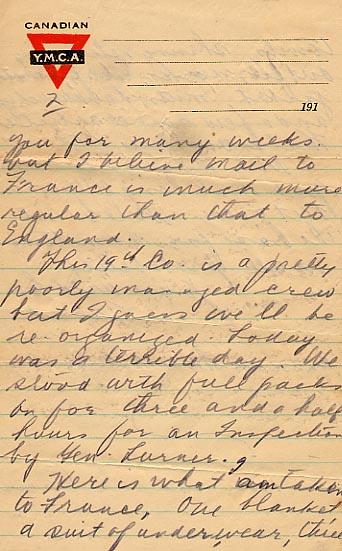 CANADIAN
Y.M.C.A.
2
191
you for many weeks.
but I believe mail to
France is much more
regular than that to
England.
This 19th Co. is a pretty
poorly managed crew
but I guess we'll be
re-organized. Today
was a terrible day. We
stood with full packs
on for three and a half
hours for an Inspection
by Gen. Turner.
Here is what am taken
to France. One blanket
a suit of underwear, three